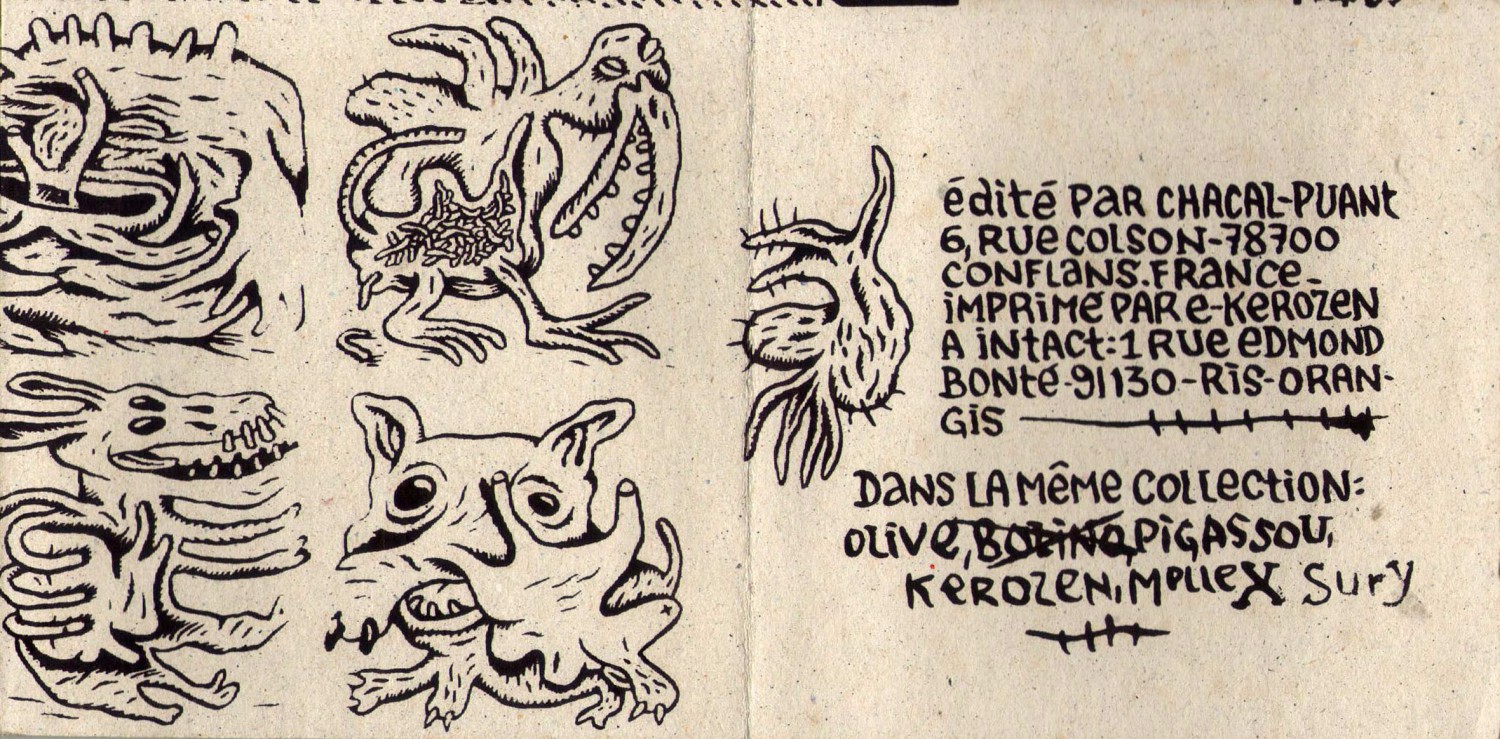 édité PAR CHACAL-PUANt
6, RUe COLSON-78700
CONFLaNS.FRaNCe-
iMPRiMé PAR e-KEROZEN
A iNtAct:1 RUe eDMOND
BONté-91130-RiS-ORAN-
GiS
DaNS LA MêME COLLeCtiON:
OLiVe, BOZiNO, PiGASSOU,
KEROZEN, MelleX Sury